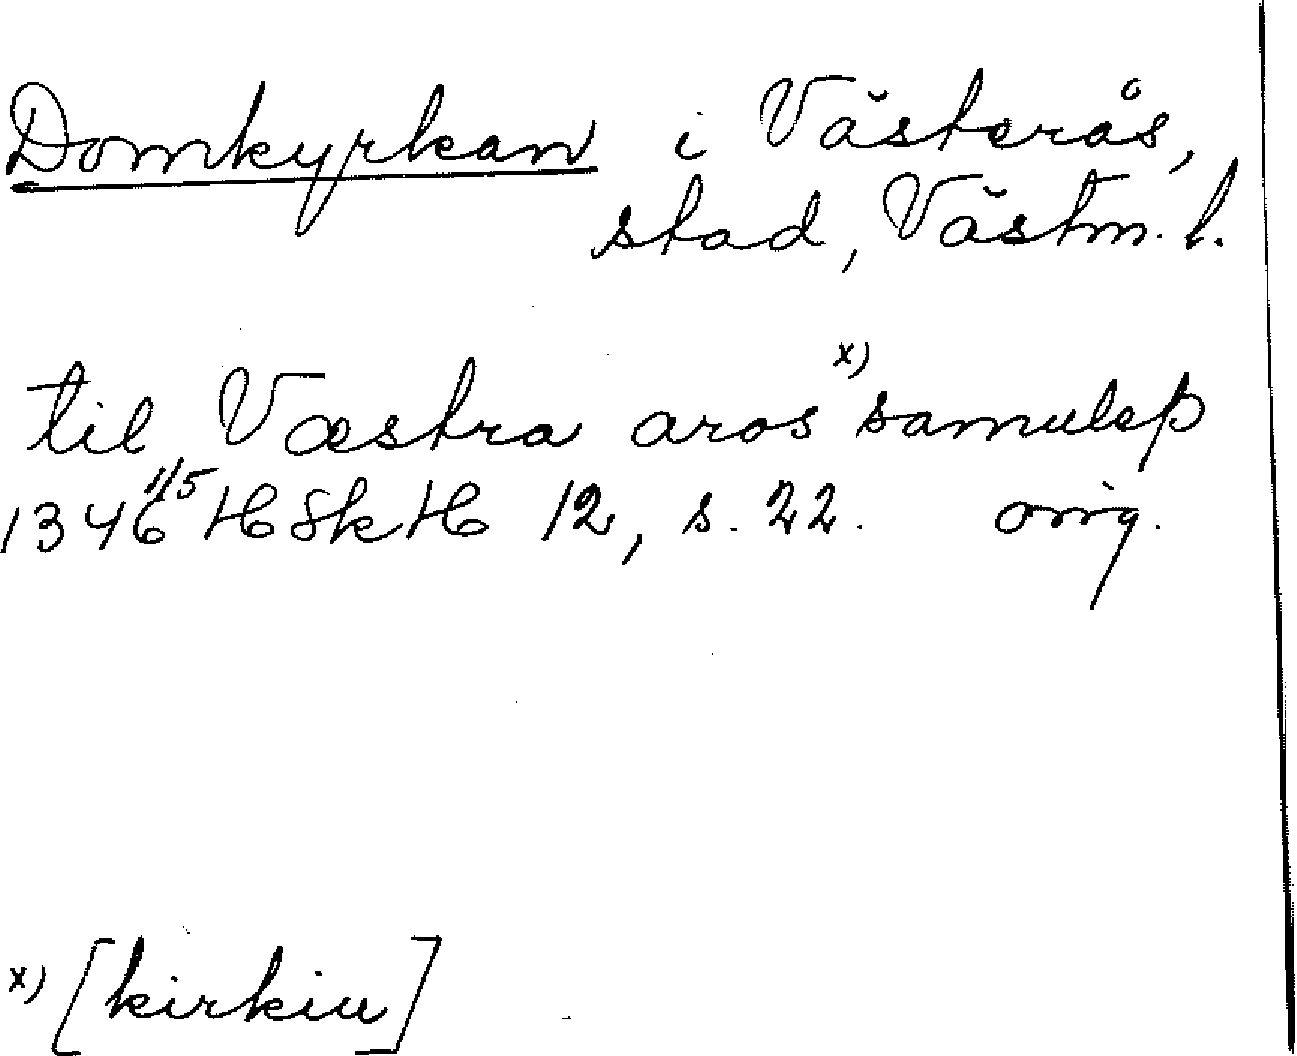 Domkyrkan i Västerås,
stad, Västm. l.
til Væstra aros x) samuleþ
1346 1/5 HSkH 12, s. 22. orig.
x) [kirkiu]